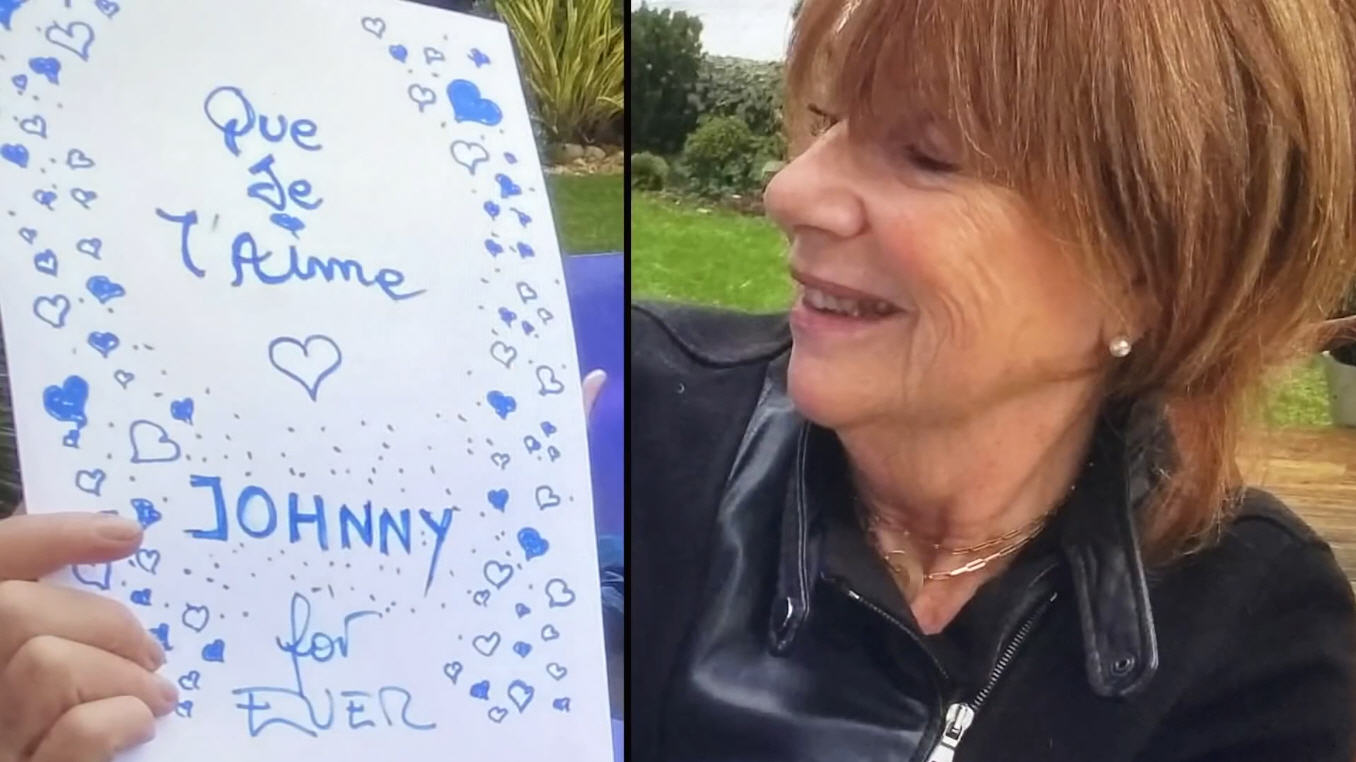 Que
Je
T'Aime
JOHNNY
for
EVER